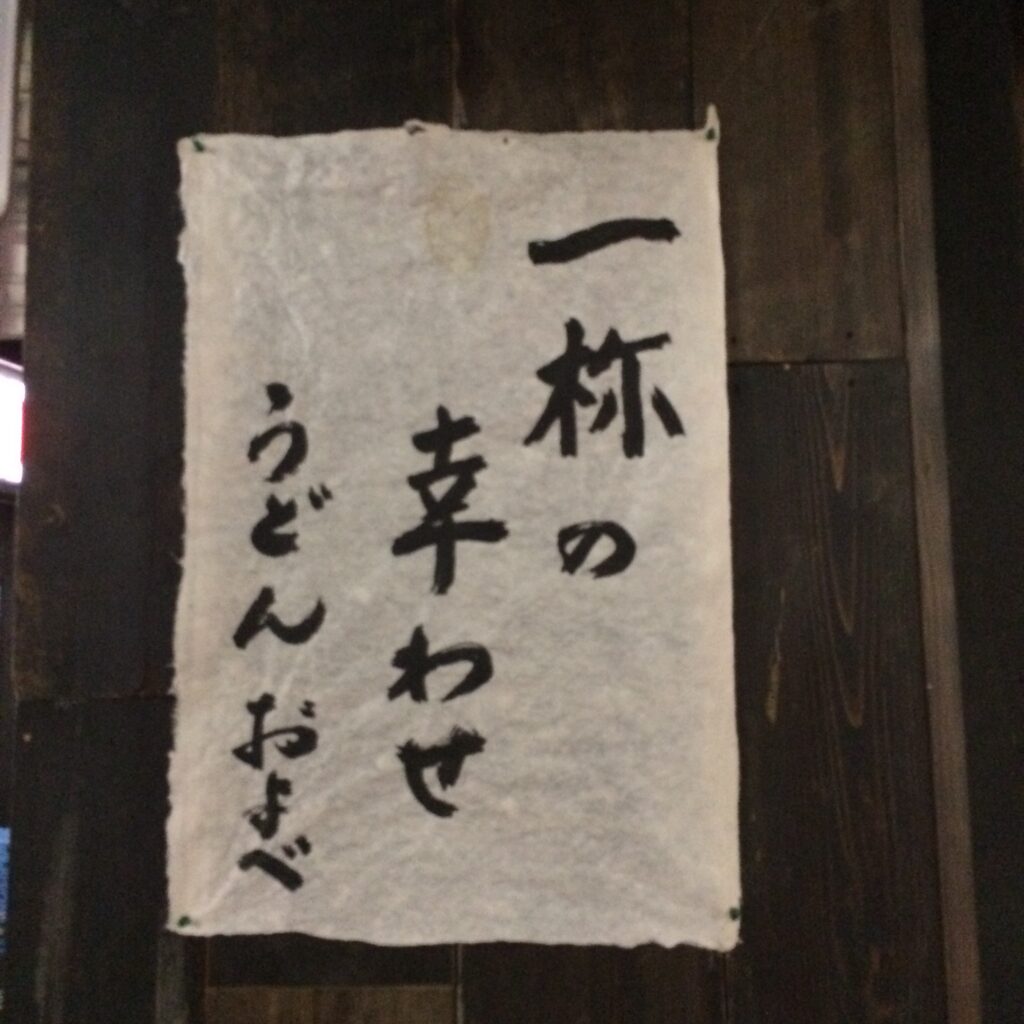 一杯の
幸わせ
うどん およべ